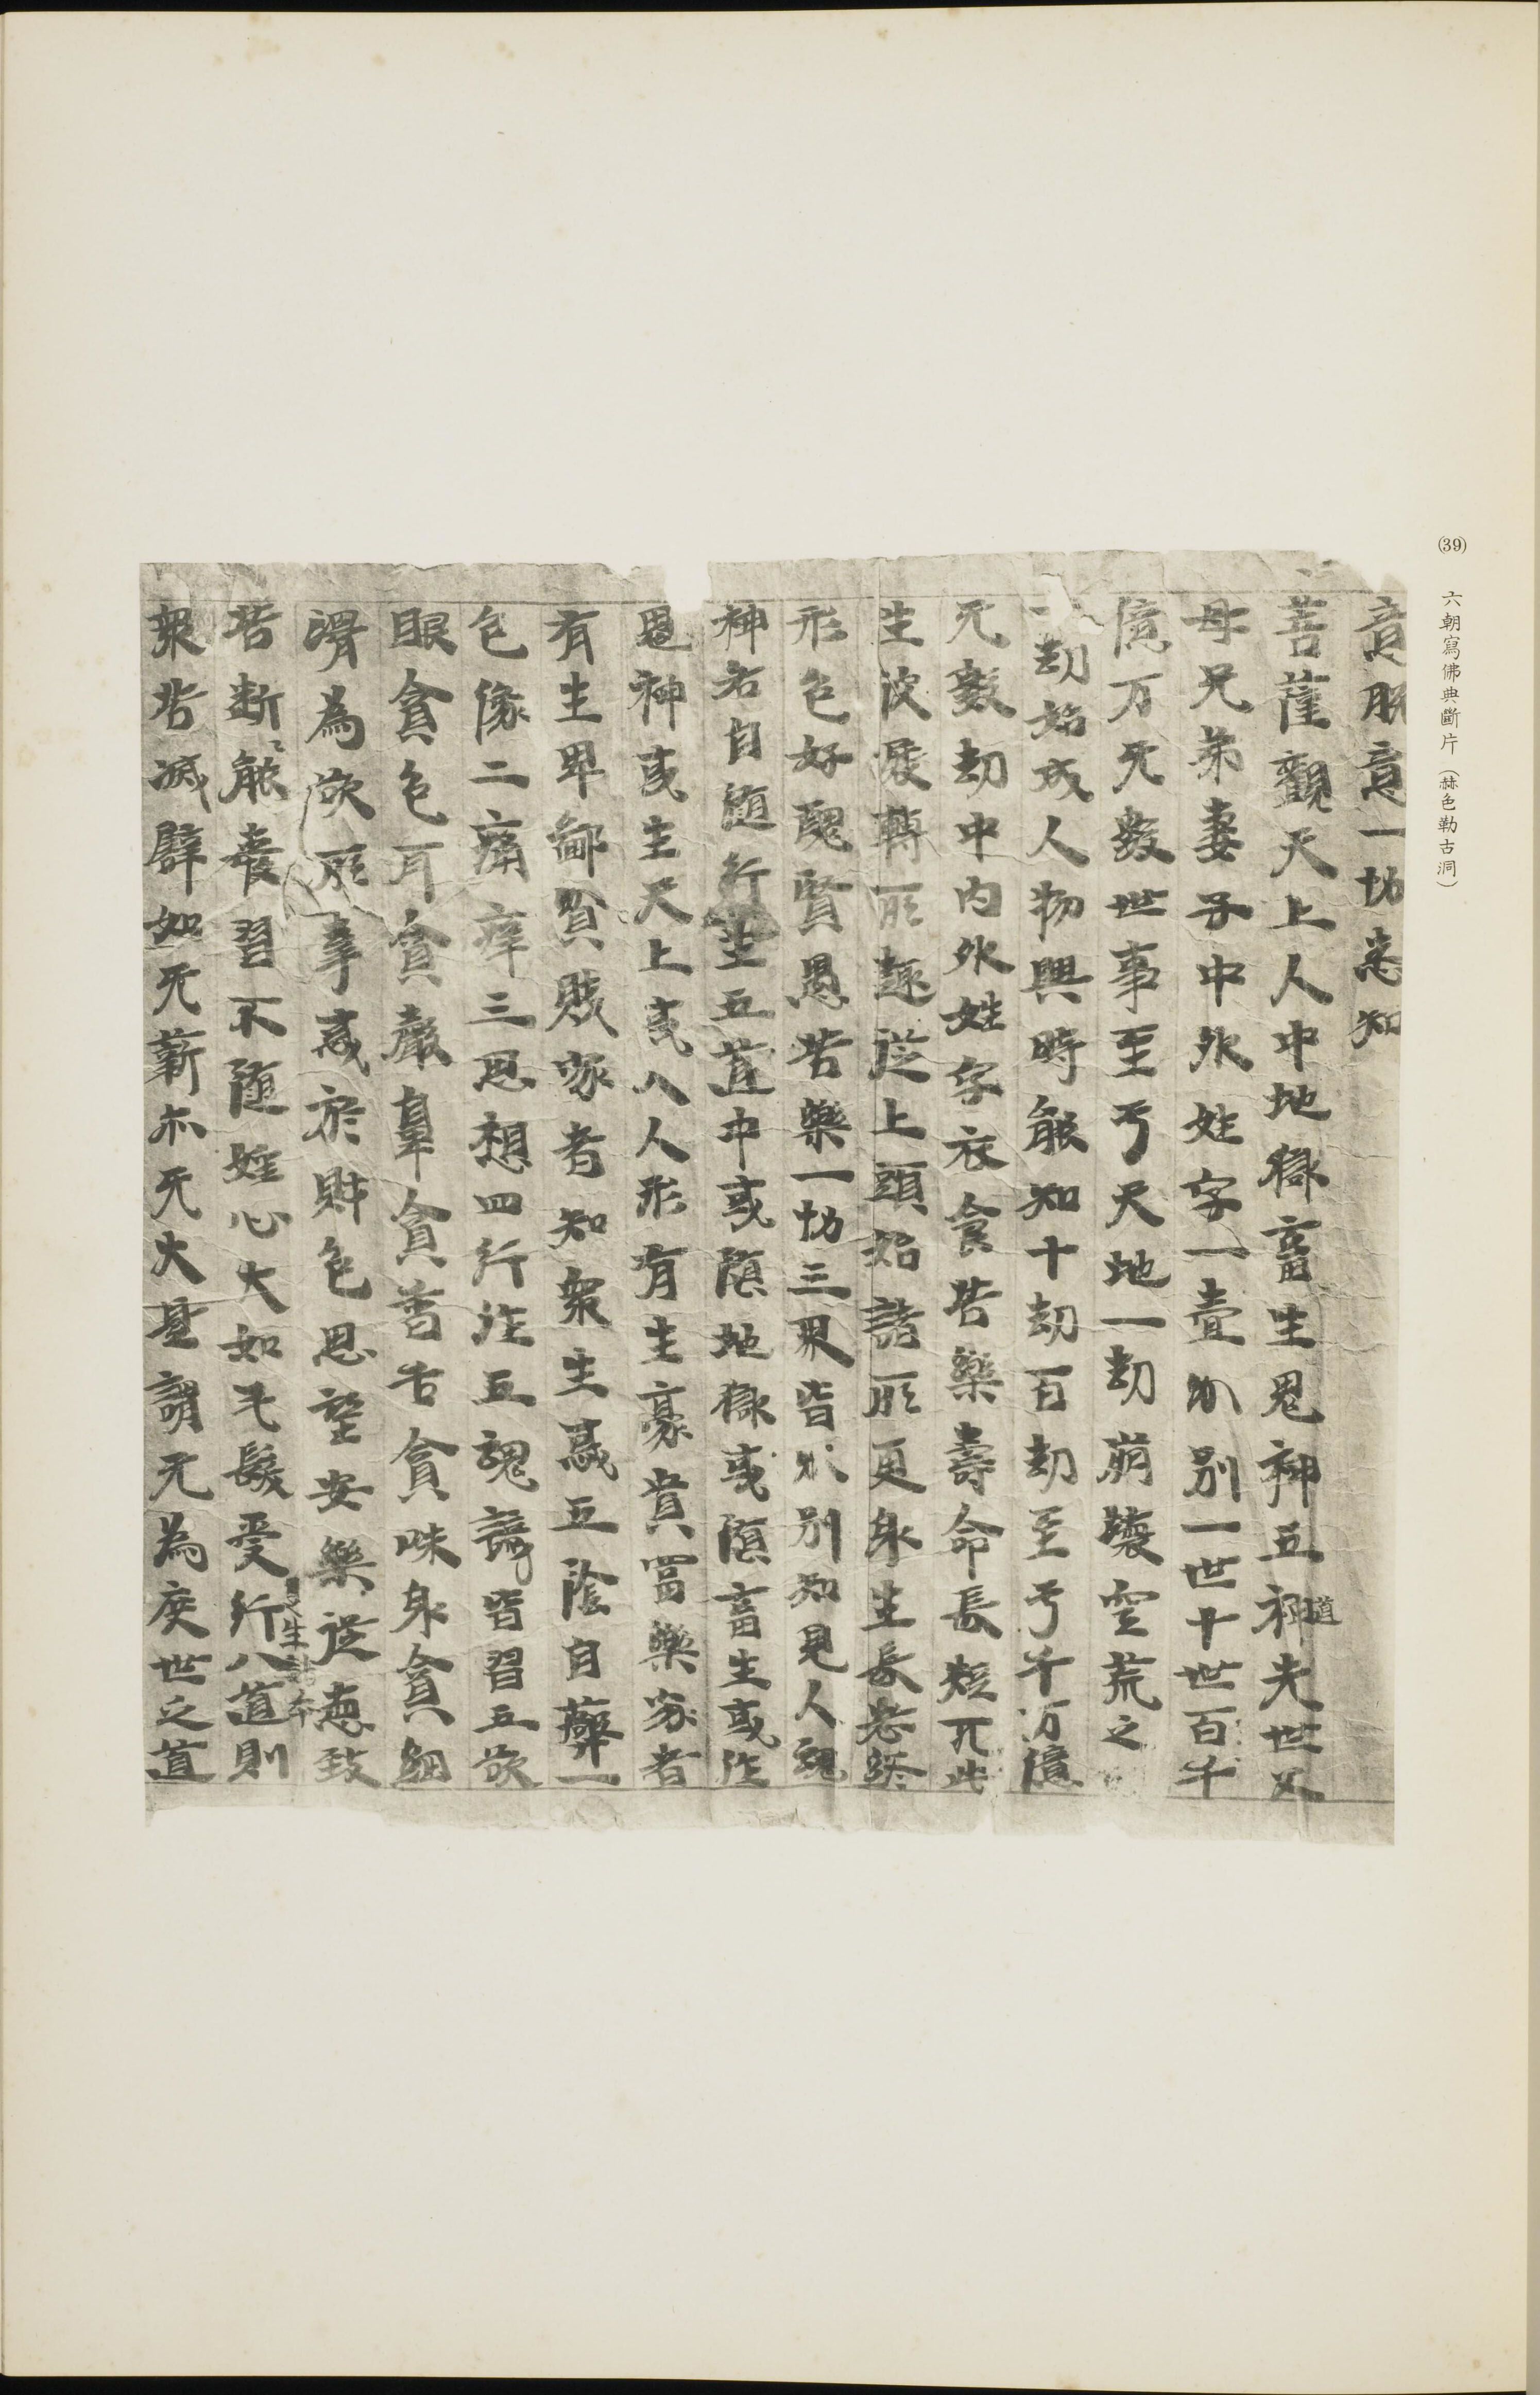 (39) 六朝寫佛典斷片（赫色勒古洞）
意脫意一切悉知
菩薩觀天上人中地獄畜生鬼神五神道先世父
母兄弟妻子中外姓字一壹分別一世十世百千
億万无數世事至于天地一劫崩壞空荒之
一劫始成人物興時能知十劫百劫至于千万億
无數劫中内外姓字衣食苦樂壽命長短死此
生彼展轉所趣從上頭始諸所更身生長老終
形色好醜賢愚苦樂一切三界皆分別知見人魂
神各自隨行生五道中或墮地獄或墮畜生或作
鬼神或生天上或入人形有生豪貴富樂家者
有生卑鄙貧賤家者知衆生或五陰自蔽一
色像二痛痒三思想四行作五魂識皆習五欲
眼貪色耳貪聲鼻貪香舌貪味身貪細
滑為欲所牽惑於財色思望安樂從惡致
苦斷能喪習不隨婬心大如毛髮受行八道則
衆苦滅譬如无薪亦无火是謂无為度世之道